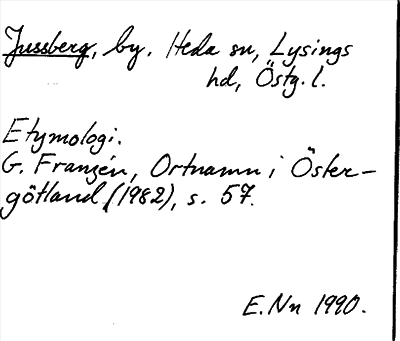 Jussberg, by. Heda sn, Lysings
hd, Östg. l.
Etymologi.
G. Franzén, Ortnamn i Öster-
götland (1982), s. 57.
E. Nn 1990.